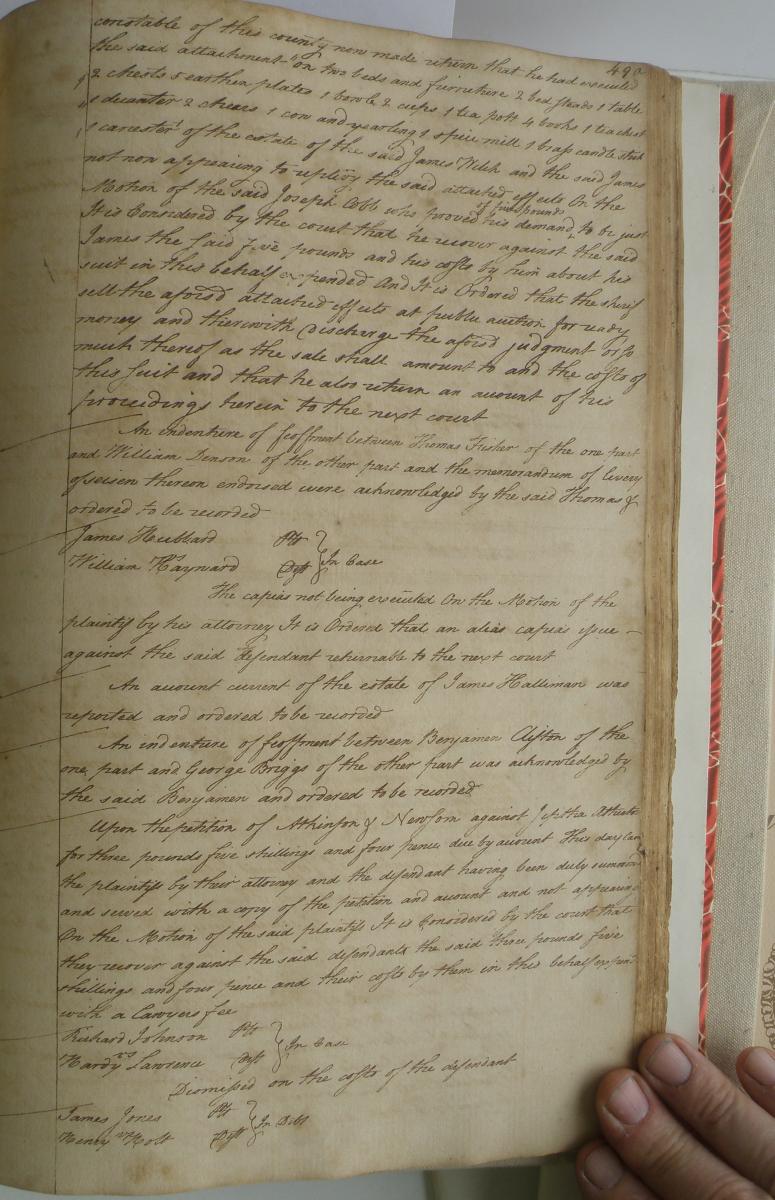 490
constable of this county now made return that he had executed
the said attachment on two beds and furniture 2 bed steads 1 table
2 chests 5 earthen plates 1 bowle 2 cups 1 tea pott 4 books 1 tea chest
1 decanter 2 chears 1 cow and yearling 1 spice mill 1 brass candle stick
1 canester of the estate of the said James Welch and the said James
not now appearing to replevy the said attached effects On the
Motion of the said Joseph Cobb who proved his demand of five pounds to be just
It is Considered by the court that he recover against the said
James the said five pounds and his costs by him about his
suit in this behalf expended And It is Ordered that the sherif
sell the aforsd attached effects at publick auction for ready
money and therewith discharge the aforsd judgment or so
much thereof as the sale shall amount to and the costs of
this suit and that he also return an account of his
proceedings herein to the next court
An indenture of feoffment between Thomas Fisher of the one part
and William Denson of the other part and the memorandum of livery
of seisen thereon endorsed were acknowledged by the said Thomas &
ordered to be recorded
James Hubbard Plt
vs In Case
William Haynard Deft
The capias not being executed On the Motion of the
plaintif by his attorney It is Ordered that an alias capias issue
against the said defendant returnable to the next court
An account current of the estate of James Halliman was
reported and ordered to be recorded
An indenture of feoffment between Benjamen Clifton of the
one part and George Briggs of the other part was acknowledged by
the said Benjamen and ordered to be recorded
Upon the petition of Atkinson & Newsom against Jeptha
for three pounds five shillings and four pence due by account This day came
the plaintifs by their attorney and the defendant having been duly summoned
and served with a copy of the petition and account and not appearing
On the Motion of the said plaintifs It is Considered by the court that
they recover against the said defendants the said three pounds five
shillings and four pence and their costs by them in this behalf expended
with a lawyers fee
Richard Johnson Plt
vs In Case
Hardy Lawrence Deft
Dismissed on the costs of the defendant
James Jones Plt
vs In Debt
Henry Holt Deft